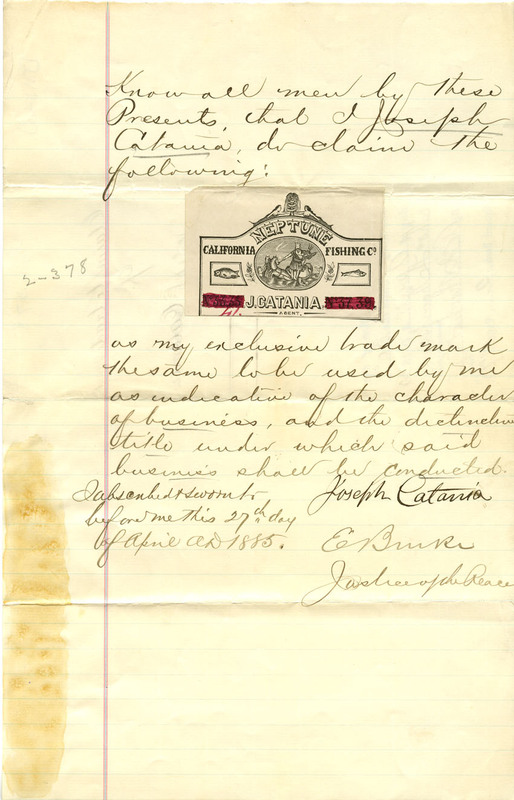 Know all men by these
Presents, that I Joseph
Catania, do claim the
following:
NEPTUNE
CALIFORNIA FISHING Co
J. CATANIA
AGENT.
41.
2-378
as my exclusive trade mark
the same to be used by me
as indicative of the character
of business, and the distinctive
title under which said
business shall be conducted.
Subscribed & sworn to
before me this 27th day
of April AD 1885.
Joseph Catania
E Burke
Justice of the Peace